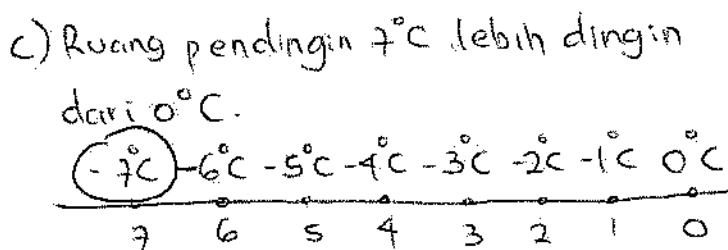 c) Ruang pendingin 7°C lebih dingin
dari 0°C.
-7°C -6°C -5°C -4°C -3°C -2°C -1°C 0°C
7 6 5 4 3 2 1 0